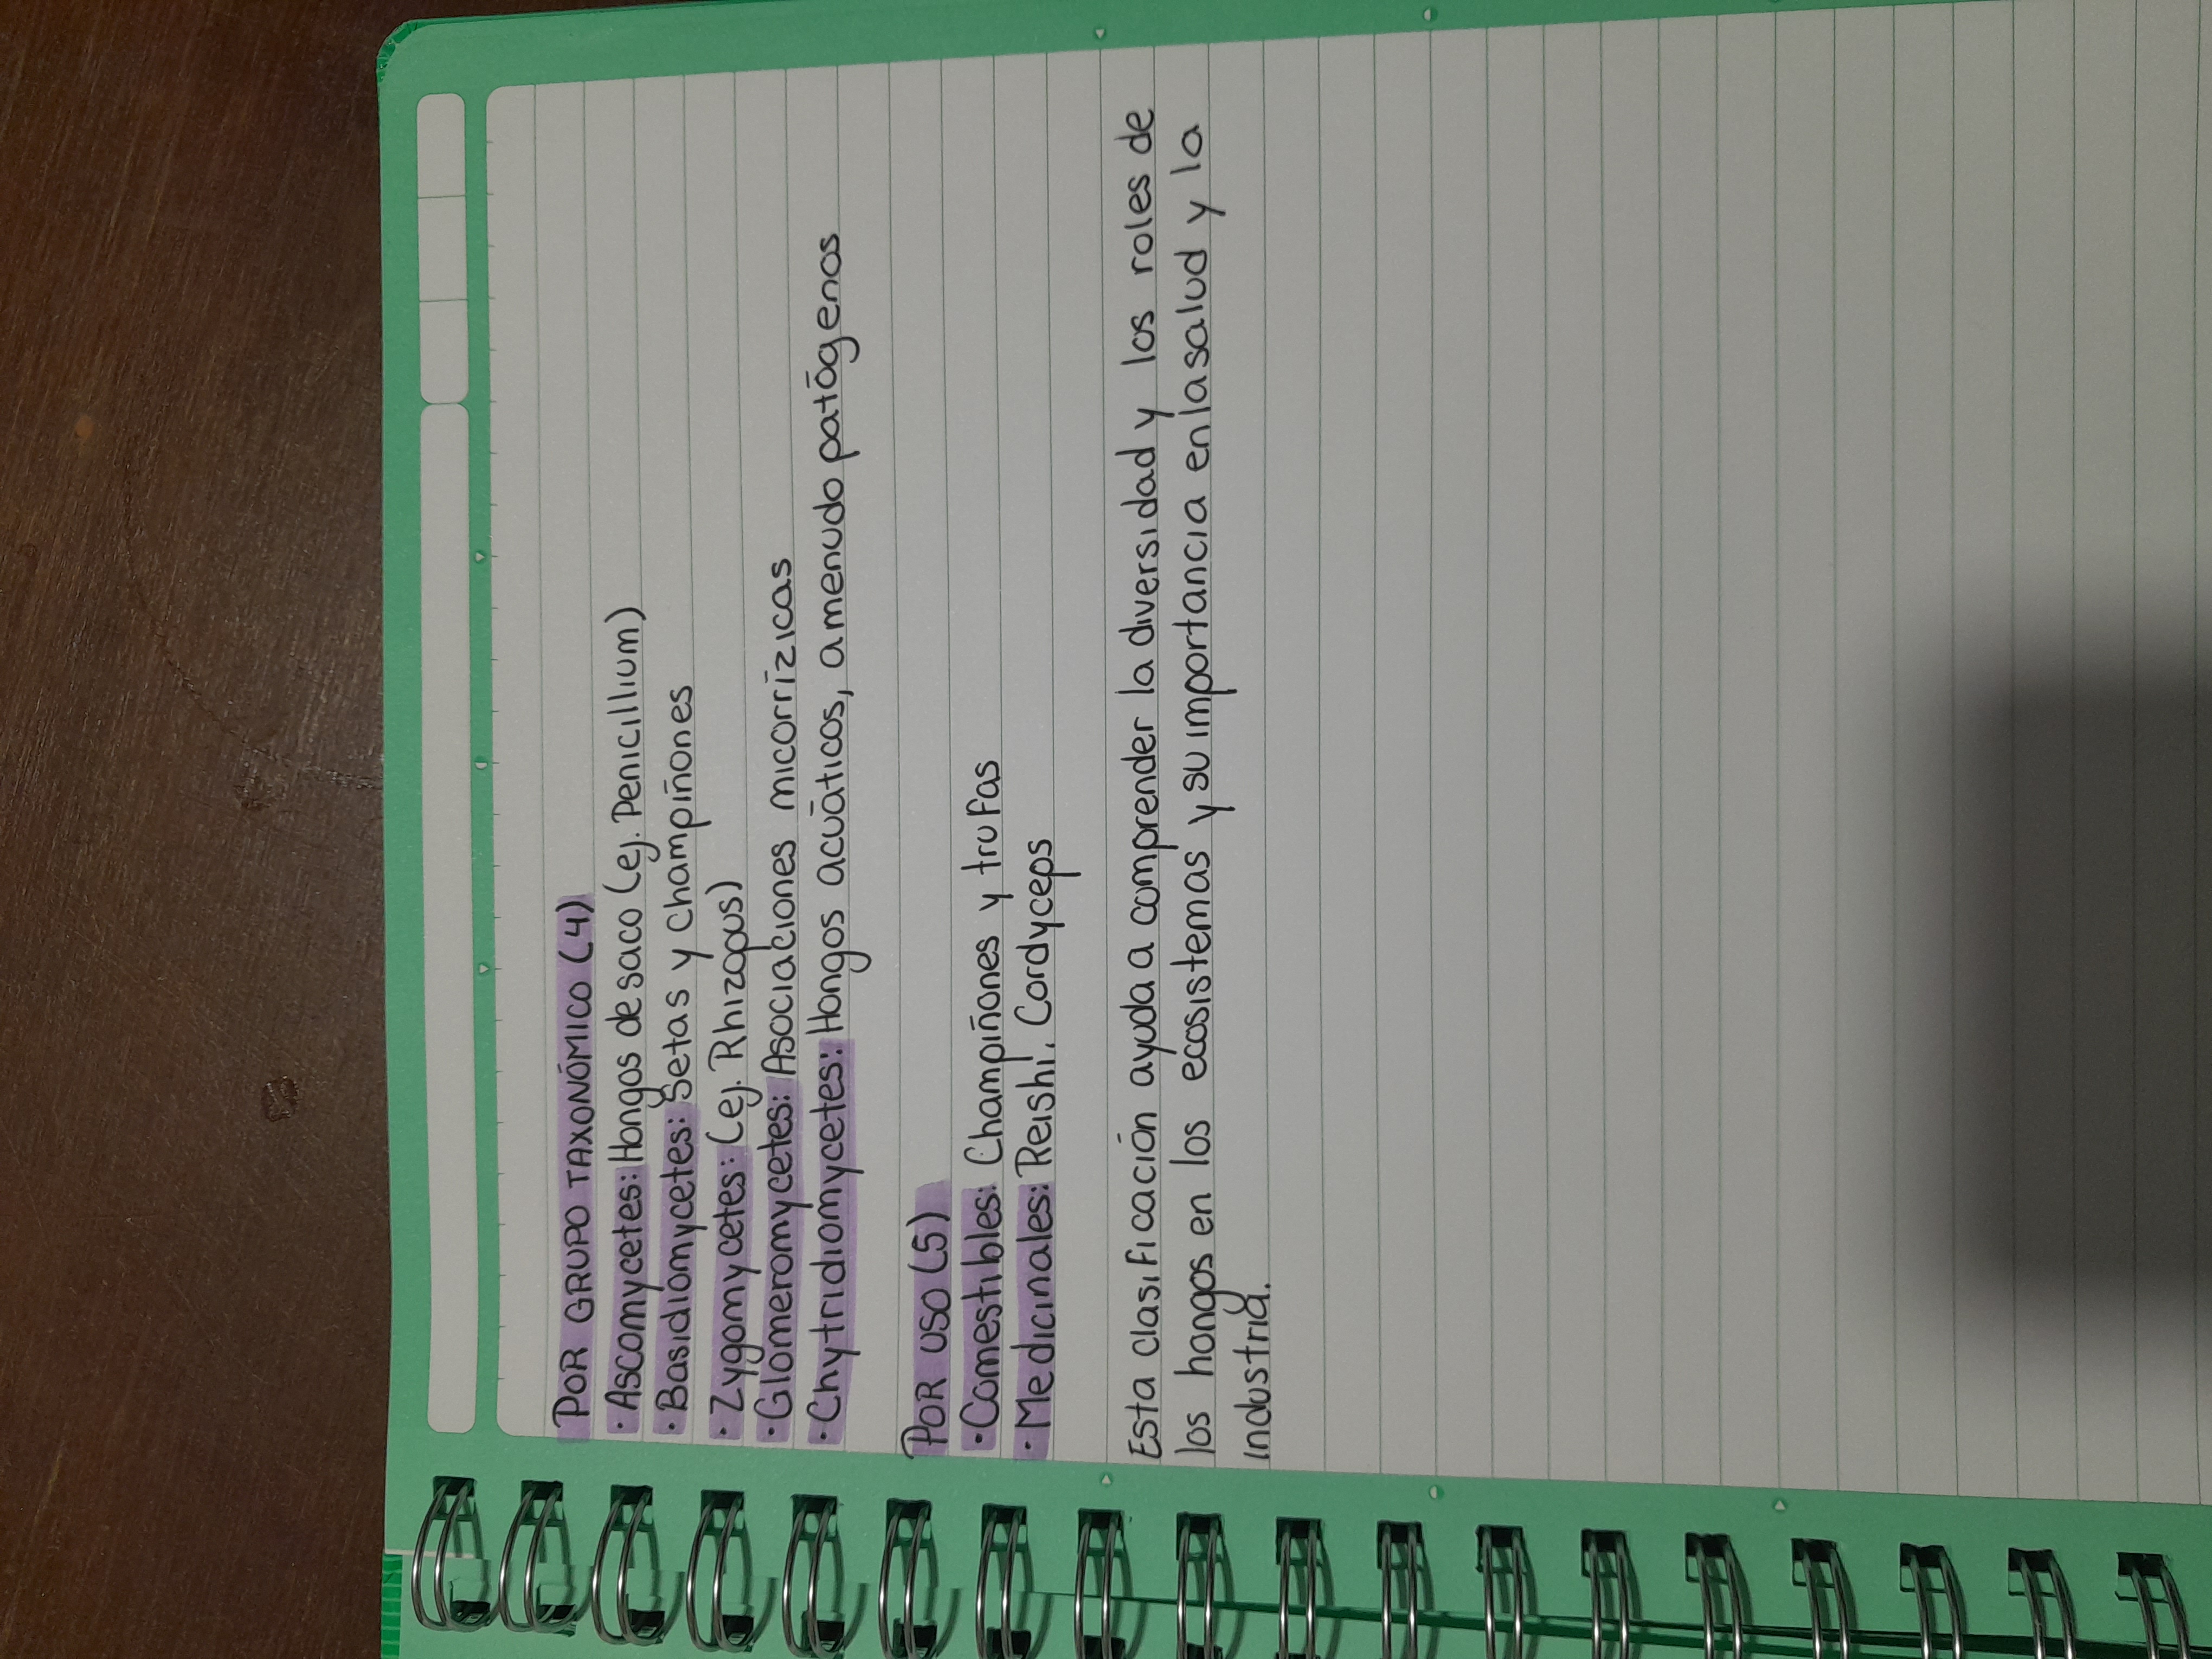 POR GRUPO TAXONÓMICO (4)
· Ascomycetes: Hongos de saco (ej. Penicillium)
· Basidiomycetes: Setas y champiñones
· Zygomycetes: (ej. Rhizopus)
· Glomeromycetes: Asociaciones micorrízicas
· Chytridiomycetes: Hongos acuáticos, a menudo patógenos
POR USO (5)
· Comestibles: Champiñones y trufas
· Medicinales: Reishi. Cordyceps
Esta clasificación ayuda a comprender la diversidad y los roles de
los hongos en los ecosistemas y su importancia en la salud y la
industria.